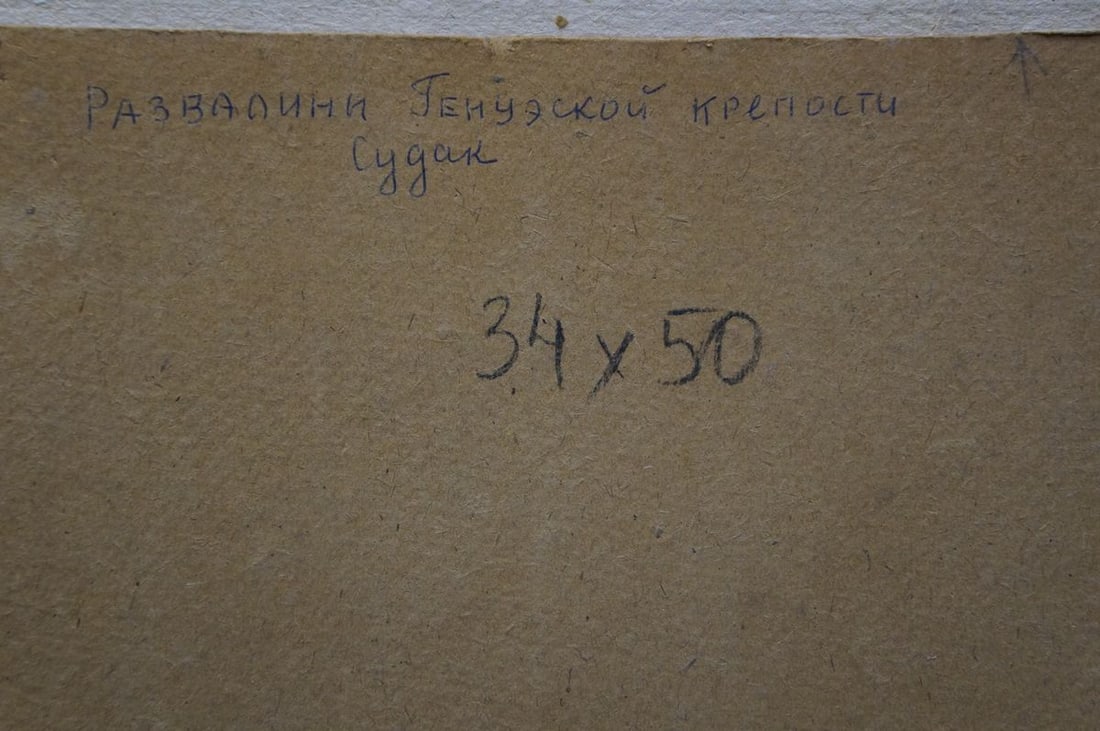 Развалини Генуэской крепости
Судак
34 х 50